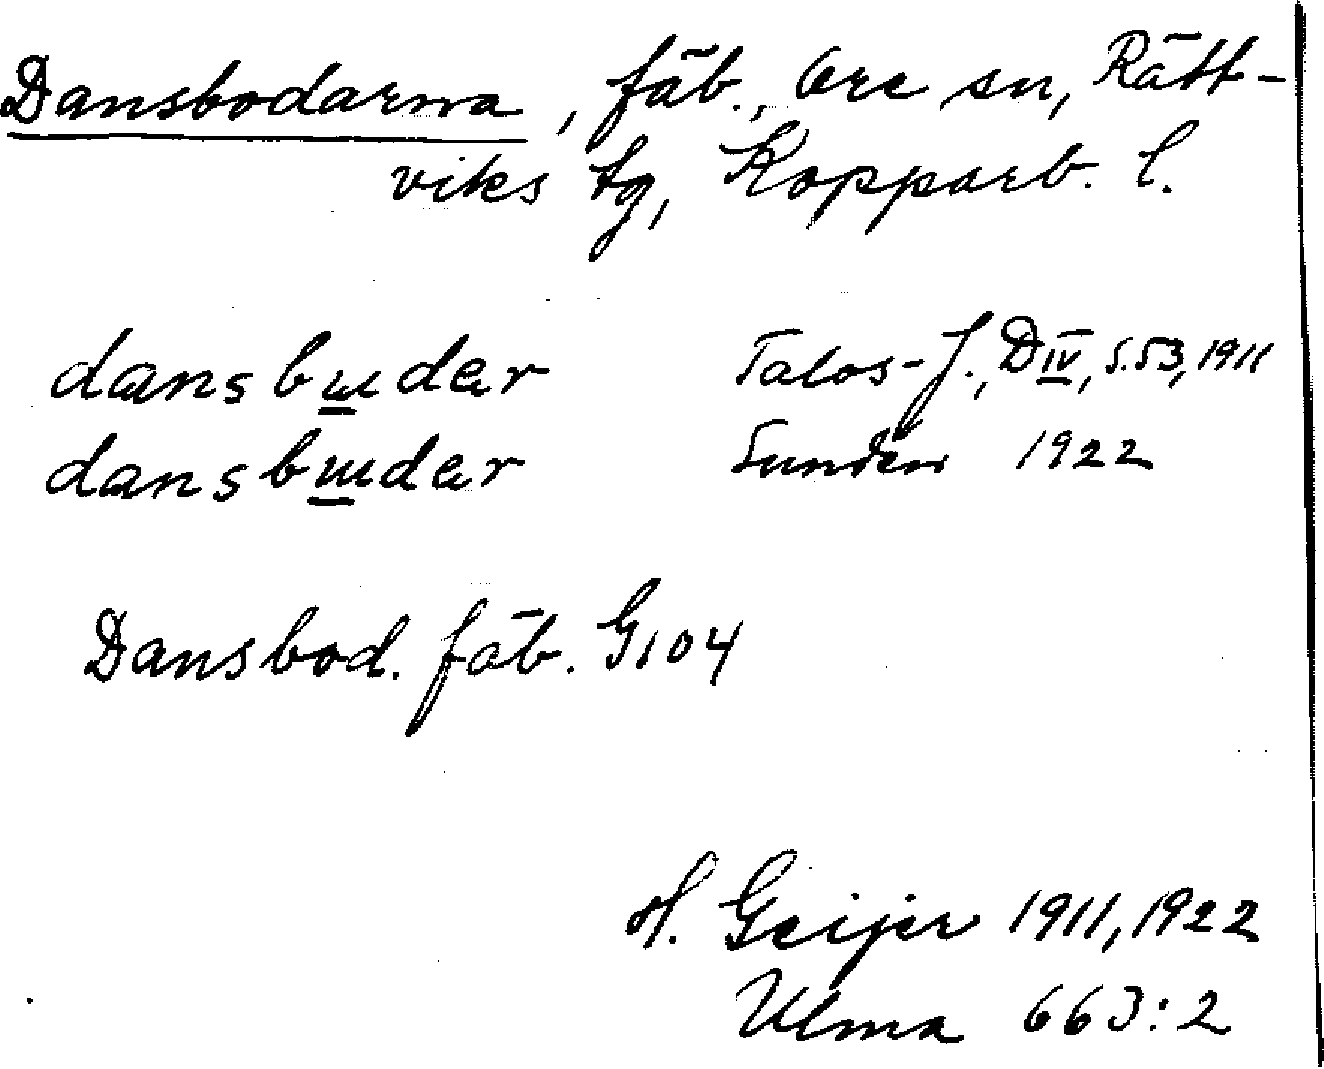 Dansbodarna, fäb., Ore sn, Rätt-
viks tg, Kopparb. l.
dansbuder Talos-J., D IV, s.53, 1911
dansbuder Sundén 1922
Dansbod. fäb. G104
H. Geijer 1911, 1922
Ulma 663:2